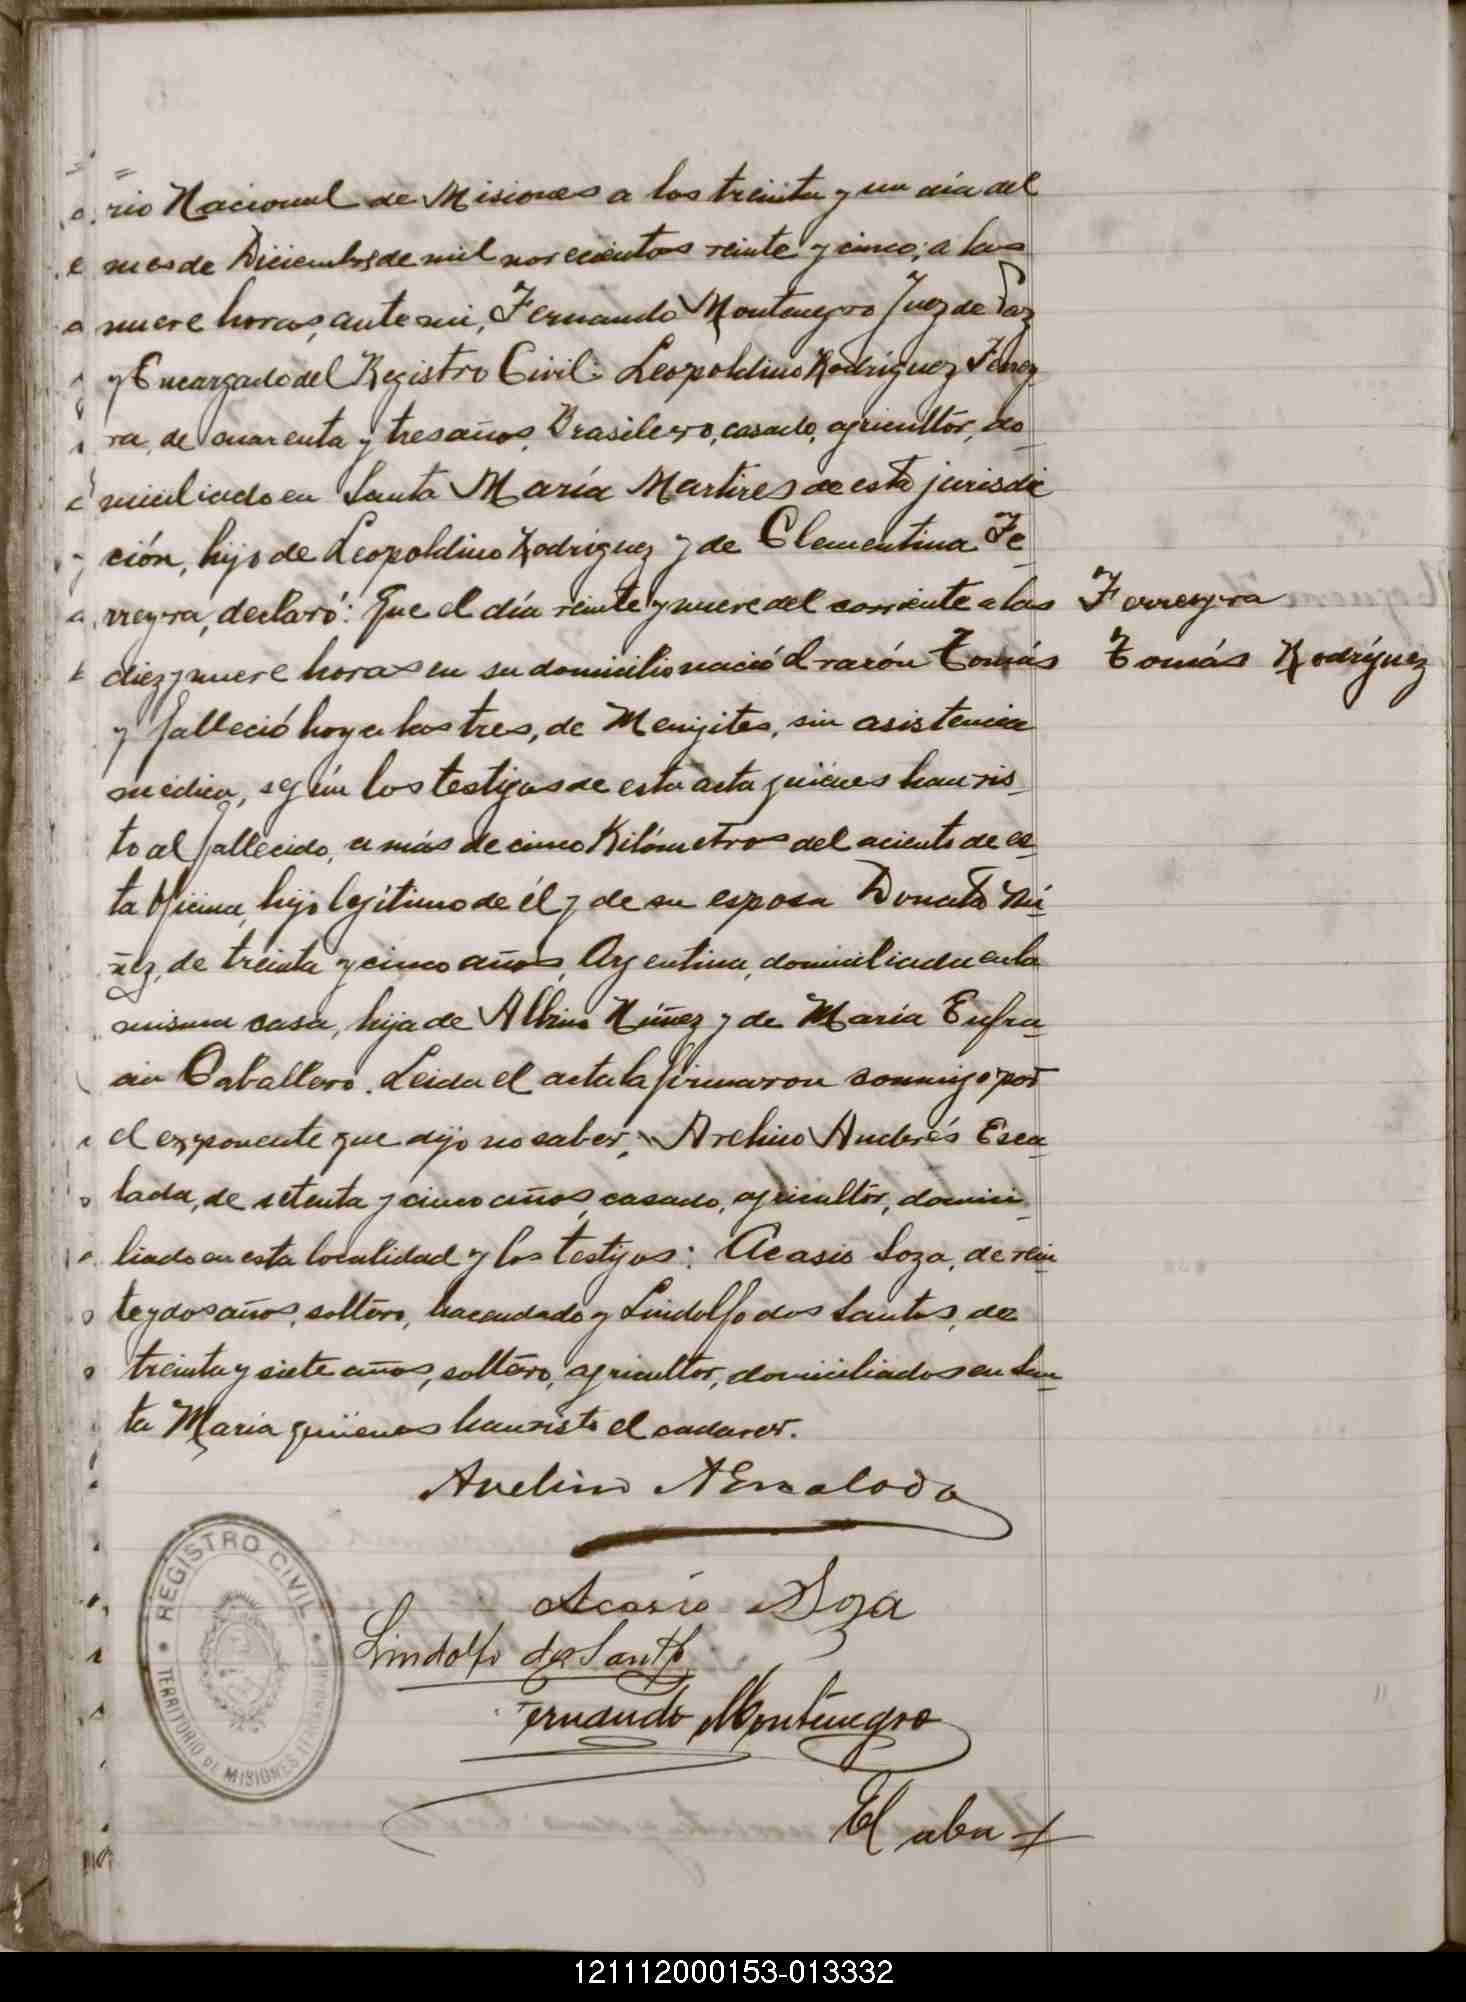 rio Nacional de Misiones a los treinta y un día del
mes de Diciembre de mil novecientos veinte y cinco, a las
nueve horas, ante mi, Fernando Montenegro Juez de Paz
y Encargado del Registro Civil: Leopoldino Rodríguez Ferrey
ra, de cuarenta y tres años, Brasilero, casado, agricultor, do
miciliado en Santa María Martires de esta jurisdic
ción, hijo de Leopoldino Rodriguez y de Clementina Fe-
rreyra, declaró: Que el día veinte y nueve del corriente a las
Ferreyra
diez y nueve horas en su domicilio nació el varón Tomás
Tomás Rodríguez
y falleció hoy a las tres, de Menijites, sin asistencia
médica, según los testigos de esta acta quienes han vis-
to al fallecido, a más de cinco Kilómetros del aciento de es-
ta Oficina, hijo legítimo de él y de su esposa Donata Nú-
ñez, de treinta y cinco años, Argentina, domiciliada en la
misma casa, hija de Albino Núñez y de María Eufra-
cia Caballero. Leida el acta la firmaron conmigo por
el exponente que dijo no saber, Avelino Andrés Esca-
lada, de setenta y cinco años, casado, agricultor, domici-
liado en esta localidad y los testigos: Acasio Soza, de vein-
te y dos años, soltero, hacendado y Lindolfo dos Santos, de
treinta y siete años, soltero, agricultor, domiciliados en San-
ta María quienes han visto el cadaver.
Avelino A Escalada
Acasio Soza
Lindolfo dos Santos
Fernando Montenegro
REGISTRO CIVIL
TERRITORIO DE MISIONES
El aba
121112000153-013332